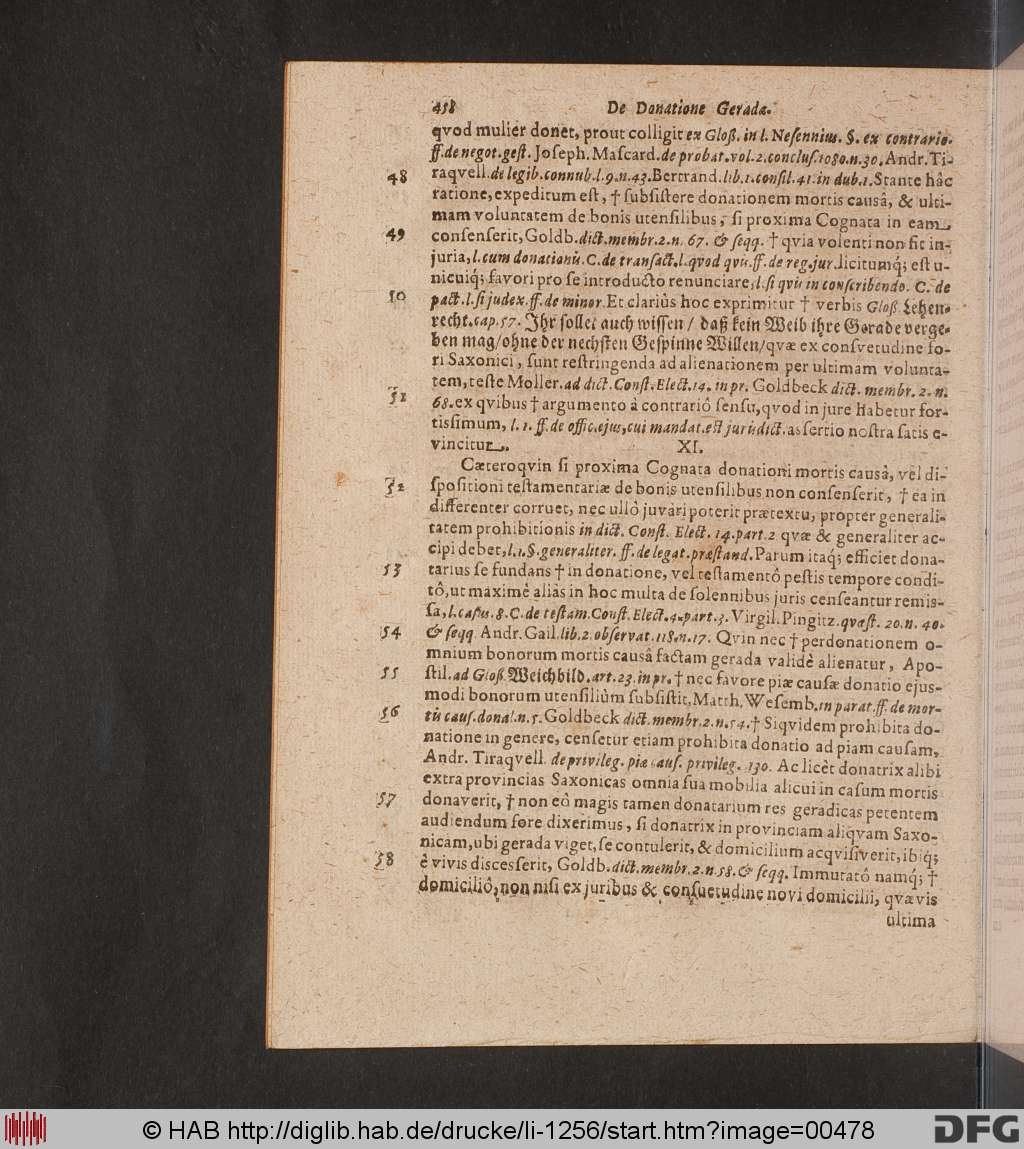 458 De Donatione Geradæ.
qvod mulier donet, prout colligit ex Gloß. in l. Nesennius. §. ex contrario.
ff. de negot. gest. Joseph. Mascard. de probat. vol. 2. conclus. 1080. n. 30. Andr. Ti-
48 raqvell. de legib. connub. l. 9. n. 43. Bertrand. lib. 1. consil. 41. in dub. 1. Stante hâc
ratione, expeditum est, † subsistere donationem mortis causâ, & ulti-
mam voluntatem de bonis utensilibus, si proxima Cognata in eam
49 consenserit, Goldb. dict. membr. 2. n. 67. & seqq. † qvia volenti non fit in-
juria, l. cum donationis. C. de transact. l. qvod qvis. ff. de reg. jur. licitumq́; est u-
nicuiq́; favori pro se introducto renunciare, l. si qvis in conscribendo. C. de
50 pact. l. si judex. ff. de minor. Et clariùs hoc exprimitur † verbis Gloß. Lehen-
recht. cap. 57. Ihr sollet auch wissen / daß kein Weib ihre Gerade verge-
ben mag / ohne der nechsten Gespinne Willen / qvæ ex consvetudine fo-
ri Saxonici, sunt restringenda ad alienationem per ultimam volunta-
tem, teste Moller. ad dict. Const. Elect. 14. in pr. Goldbeck dict. membr. 2. n.
51 68. ex qvibus † argumento à contrariô sensu, qvod in jure habetur for-
tissimum, l. 1. ff. de offic. ejus, cui mandat. est jurisdict. assertio nostra satis e-
vincitur.
XI.
Cæteroqvin si proxima Cognata donationi mortis causâ, vel di-
52 spositioni testamentariæ de bonis utensilibus non consenserit, † ea in
differenter corruet, nec ullô juvari poterit prætextu, propter generali-
tatem prohibitionis in dict. Const. Elect. 14. part. 2 qvæ & generaliter ac-
cipi debet, l. 1. §. generaliter. ff. de legat. præstand. Parum itaq́; efficiet dona-
53 tarius se fundans † in donatione, vel testamentô pestis tempore condi-
tô, ut maximè aliàs in hoc multa de solennibus juris censeantur remis-
sa, l. casus. 8. C. de testam. Const. Elect. 4. part. 3. Virgil. Pingitz. qvæst. 20. n. 40.
54 & seqq. Andr. Gail. lib. 2. observat. 118. n. 17. Qvin nec † per donationem o-
mnium bonorum mortis causâ factam gerada validè alienatur, Apo-
55 stil. ad Gloß. Weichbild. art. 23. in pr. † nec favore piæ causæ donatio ejus-
modi bonorum utensiliùm subsistit, Matth. Wesemb. in parat. ff. de mor-
56 tis caus. donat. n. 5. Goldbeck dict. membr. 2. n. 54. † Siqvidem prohibita do-
natione in genere, censetur etiam prohibita donatio ad piam causam,
Andr. Tiraqvell. de privileg. piæ caus. privileg. 130. Ac licèt donatrix alibi
extra provincias Saxonicas omnia sua mobilia alicui in casum mortis
57 donaverit, † non eô magis tamen donatarium res geradicas petentem
audiendum fore dixerimus, si donatrix in provinciam aliqvam Saxo-
nicam, ubi gerada viget, se contulerit, & domicilium acqvisiverit, ibiq́;
58 è vivis discesserit, Goldb. dict. membr. 2. n. 58. & seqq. Immutatô namq́; †
domiciliô, non nisi ex juribus & consuetudine novi domicilii, qvævis
ultima
© HAB http://diglib.hab.de/drucke/li-1256/start.htm?image=00478
DFG